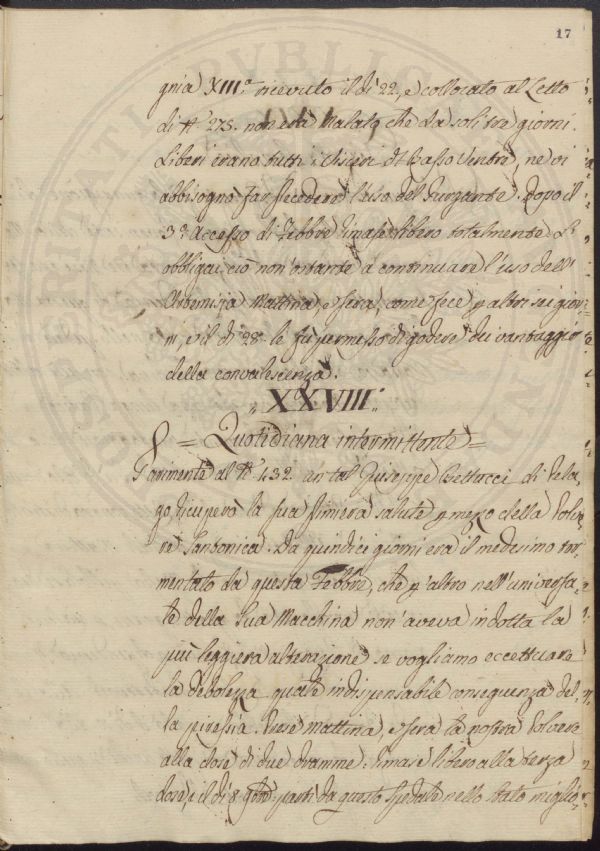 17
gnia XIII.a ricevuto il di 22, e collocato al Letto
di N.o 273. non era Malato che da soli tre giorni.
Liberi erano tutti i Visceri del basso Ventre, ne vi
abbisognò far precedere l'uso del Purgante. Dopo il
3.o Accesso di Febbre rimase libero totalmente. L'
obbligai ciò non'ostante a continuare l'uso dell'
Artemisia Mattina, e sera, come fece p altri sei gior-
ni, e il di 28. le fu permesso di godere dei vantaggi
della convalescenza.
"XXVIII."
= Quotidiana intermittente =
Parimente al N.o 432. un tal Giuseppe di
ricuperò la sua primiera salute p mezzo della Polve-
re Santonica. Da quindici giorni era il medesimo tor-
mentato da questa Febbre, che p altro nell'universa-
le della Sua Macchina non'aveva indotta la
più leggiera alterazione se vogliamo eccettuare
la debolezza quale indispensabile conseguenza del-
la piressia. Prese mattina, e sera la nostra Polvere
alla dose di due dramme. Rimase libero alla terza
dose, e il di 8. partì da questo Spedale nello stato miglio-